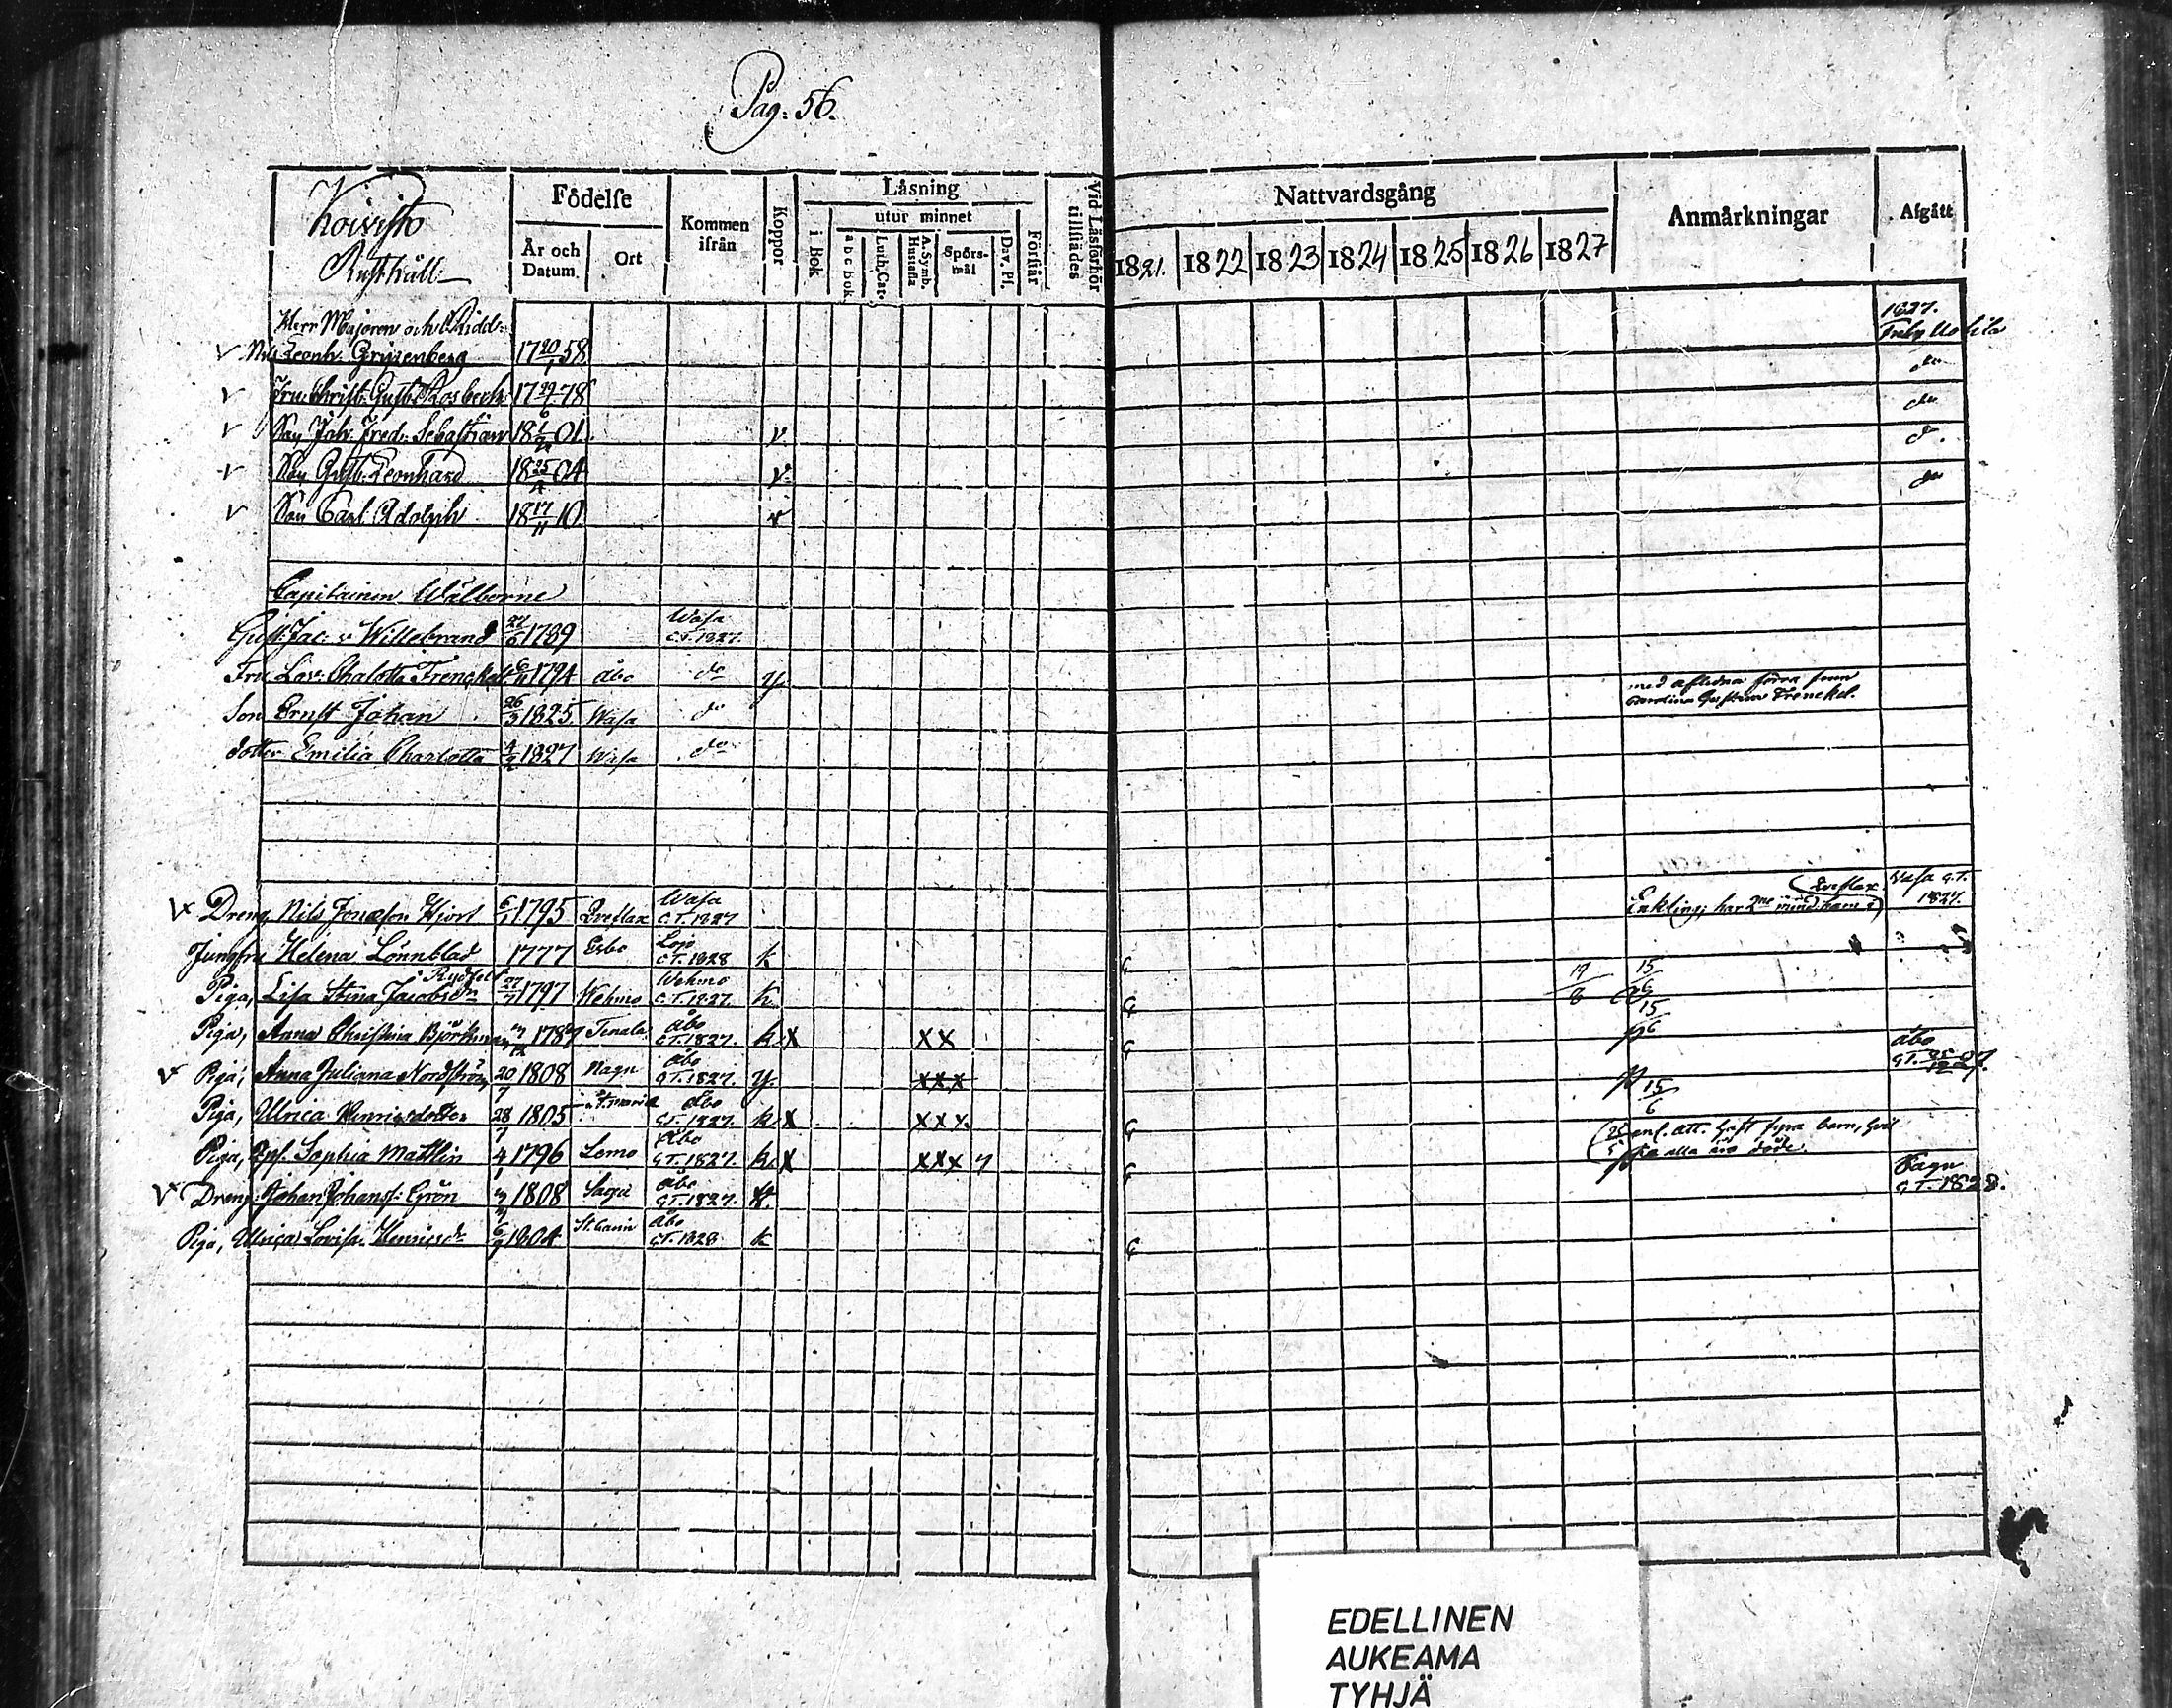 Pag. 56.
Koivisto
Rusthåll
Födelse
År och Datum.
Ort
Kommen ifrån
Koppor
Läsning
i Bok
utur minnet
a b c bok
Luth. Cat.
A. Symb. Hustafla
Spörsmål
Dav. Ps.
Förstår
Vid Läsförhör tillstädes
Nattvardsgång
1821. 1822 1823 1824 1825 1826 1827
Anmärkningar
Afgått
Herr Majoren och Ridd:
1827.
v Nils Leonh. Gripenberg 17 20/1 58
v Fru Christ: Gust: Rosbeck 17 78 do
v Son Joh. Fred: Sebastian 18 01. v do
v Son Gust: Leonhard 18 25/4 04 v d.
v Son Carl Adolph 18 17/11 10 v do
Capitainen Wälborne
Gust: Jac: v Willebrand 1789 Wasa G.T. 1827.
Fru Lov: Chalotta Frenckell 1794 Åbo do y.
med afledna förra frun
Gustava Frenckel.
Son Ernst Johan 26/3 1825 Wasa do
dotter Emilia Charlotta 4/2 1827 Wasa do
Dreng Nils Jonasson Hjort 1795 Qveflax Wasa G.T. 1827
Enkling; har (Qveflax)
Wasa G.T. 1827.
Jungfru Helena Lönnblad 1777 Esbo Lojo G.T. 1828 k G
Piga, Lisa Stina Jacobsdr 27/7 1797 Wehmo Wehmo G.T. 1827. k G 15/6
Piga, Anna Christina Björkman 1787 Tenala Åbo G.T. 1827. k x xx G 15/6
v Piga, Anna Juliana Nordström 20/7 1808 Nagu Åbo G.T. 1827. y. xxx
Åbo G.T.
Piga, Ulrica Henricsdotter 28/7 1805 St. Marie Åbo G.T. 1827. k x xxx G 15/6
Piga, Sophia Mattlin 4/1 1796 Lemo Åbo G.T. 1827. k. x xxx G
enl. att. haft fyra barn,
alla äro döde.
v Dreng Johan Johanss: Grön 1808 Sagu Åbo G.T. 1827.
G.T. 1828.
Piga, Ulrica Lovisa Henricsdr 1804 Åbo G.T. 1828 k G
EDELLINEN
AUKEAMA
TYHJÄ